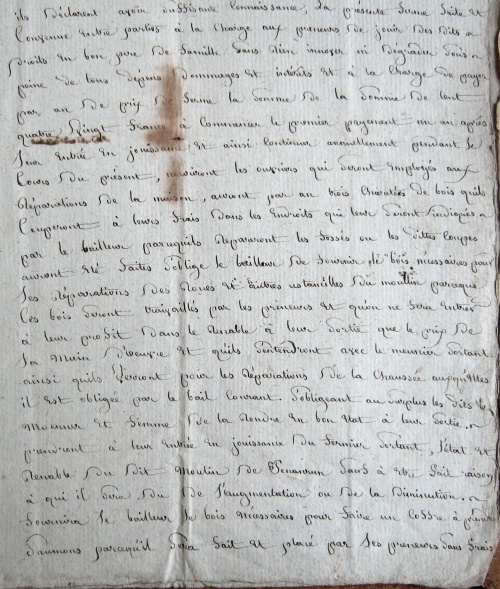 ils déclarent avoir suffisante connaissance, la présente ferme faite et
Convenue entre parties à la charge aux preneurs de jouir des dits
droits en bon père de famille sans rien innover ni dégrader sous
peine de tous dépens dommages et intérêts et à la charge de payer
par an de prix de ferme la somme de la somme de cent
quatre vingt francs à commencer le premier payement un an après
leur entrée en jouissance et ainsi continuer annuellement pendant le
Cours du présent, les ouvriers qui seront employés aux
réparations de la maison, auront par an trois charretées de bois quils
Couperont à leurs frais dans les endroits qui leur seront indiqués
par le bailleur parcequils répareront les fossés ou les dittes coupes
auront été faites s'oblige le bailleur de fournir le bois nécessaires pour
les réparations des roues et autres ustancilles du moulin parceque
Ces bois seront travaillés par les preneurs et qu'on ne sera
à leur profit dans le renable à leur sortie que le prix de
la main d'oeuvre et quils s'entendront avec le meunier sortant
ainsi quils verront pour les réparations de la chaussée auxquelles
il est obligée par le bail courant. s'obligeant au surplus les dits
Meunier et femme de la rendre en bon état à leur sortie
prendront à leur entrée en jouissance du fermier sortant, l'état et
Renable du dit Moulin de Penanrun sauf à être fait raison
à qui il sera du de l'augmentation ou de la diminution
fournira le bailleur le bois nécessaires pour faire un coffre à
parcequ'il sera fait et placé par les preneurs sans frais